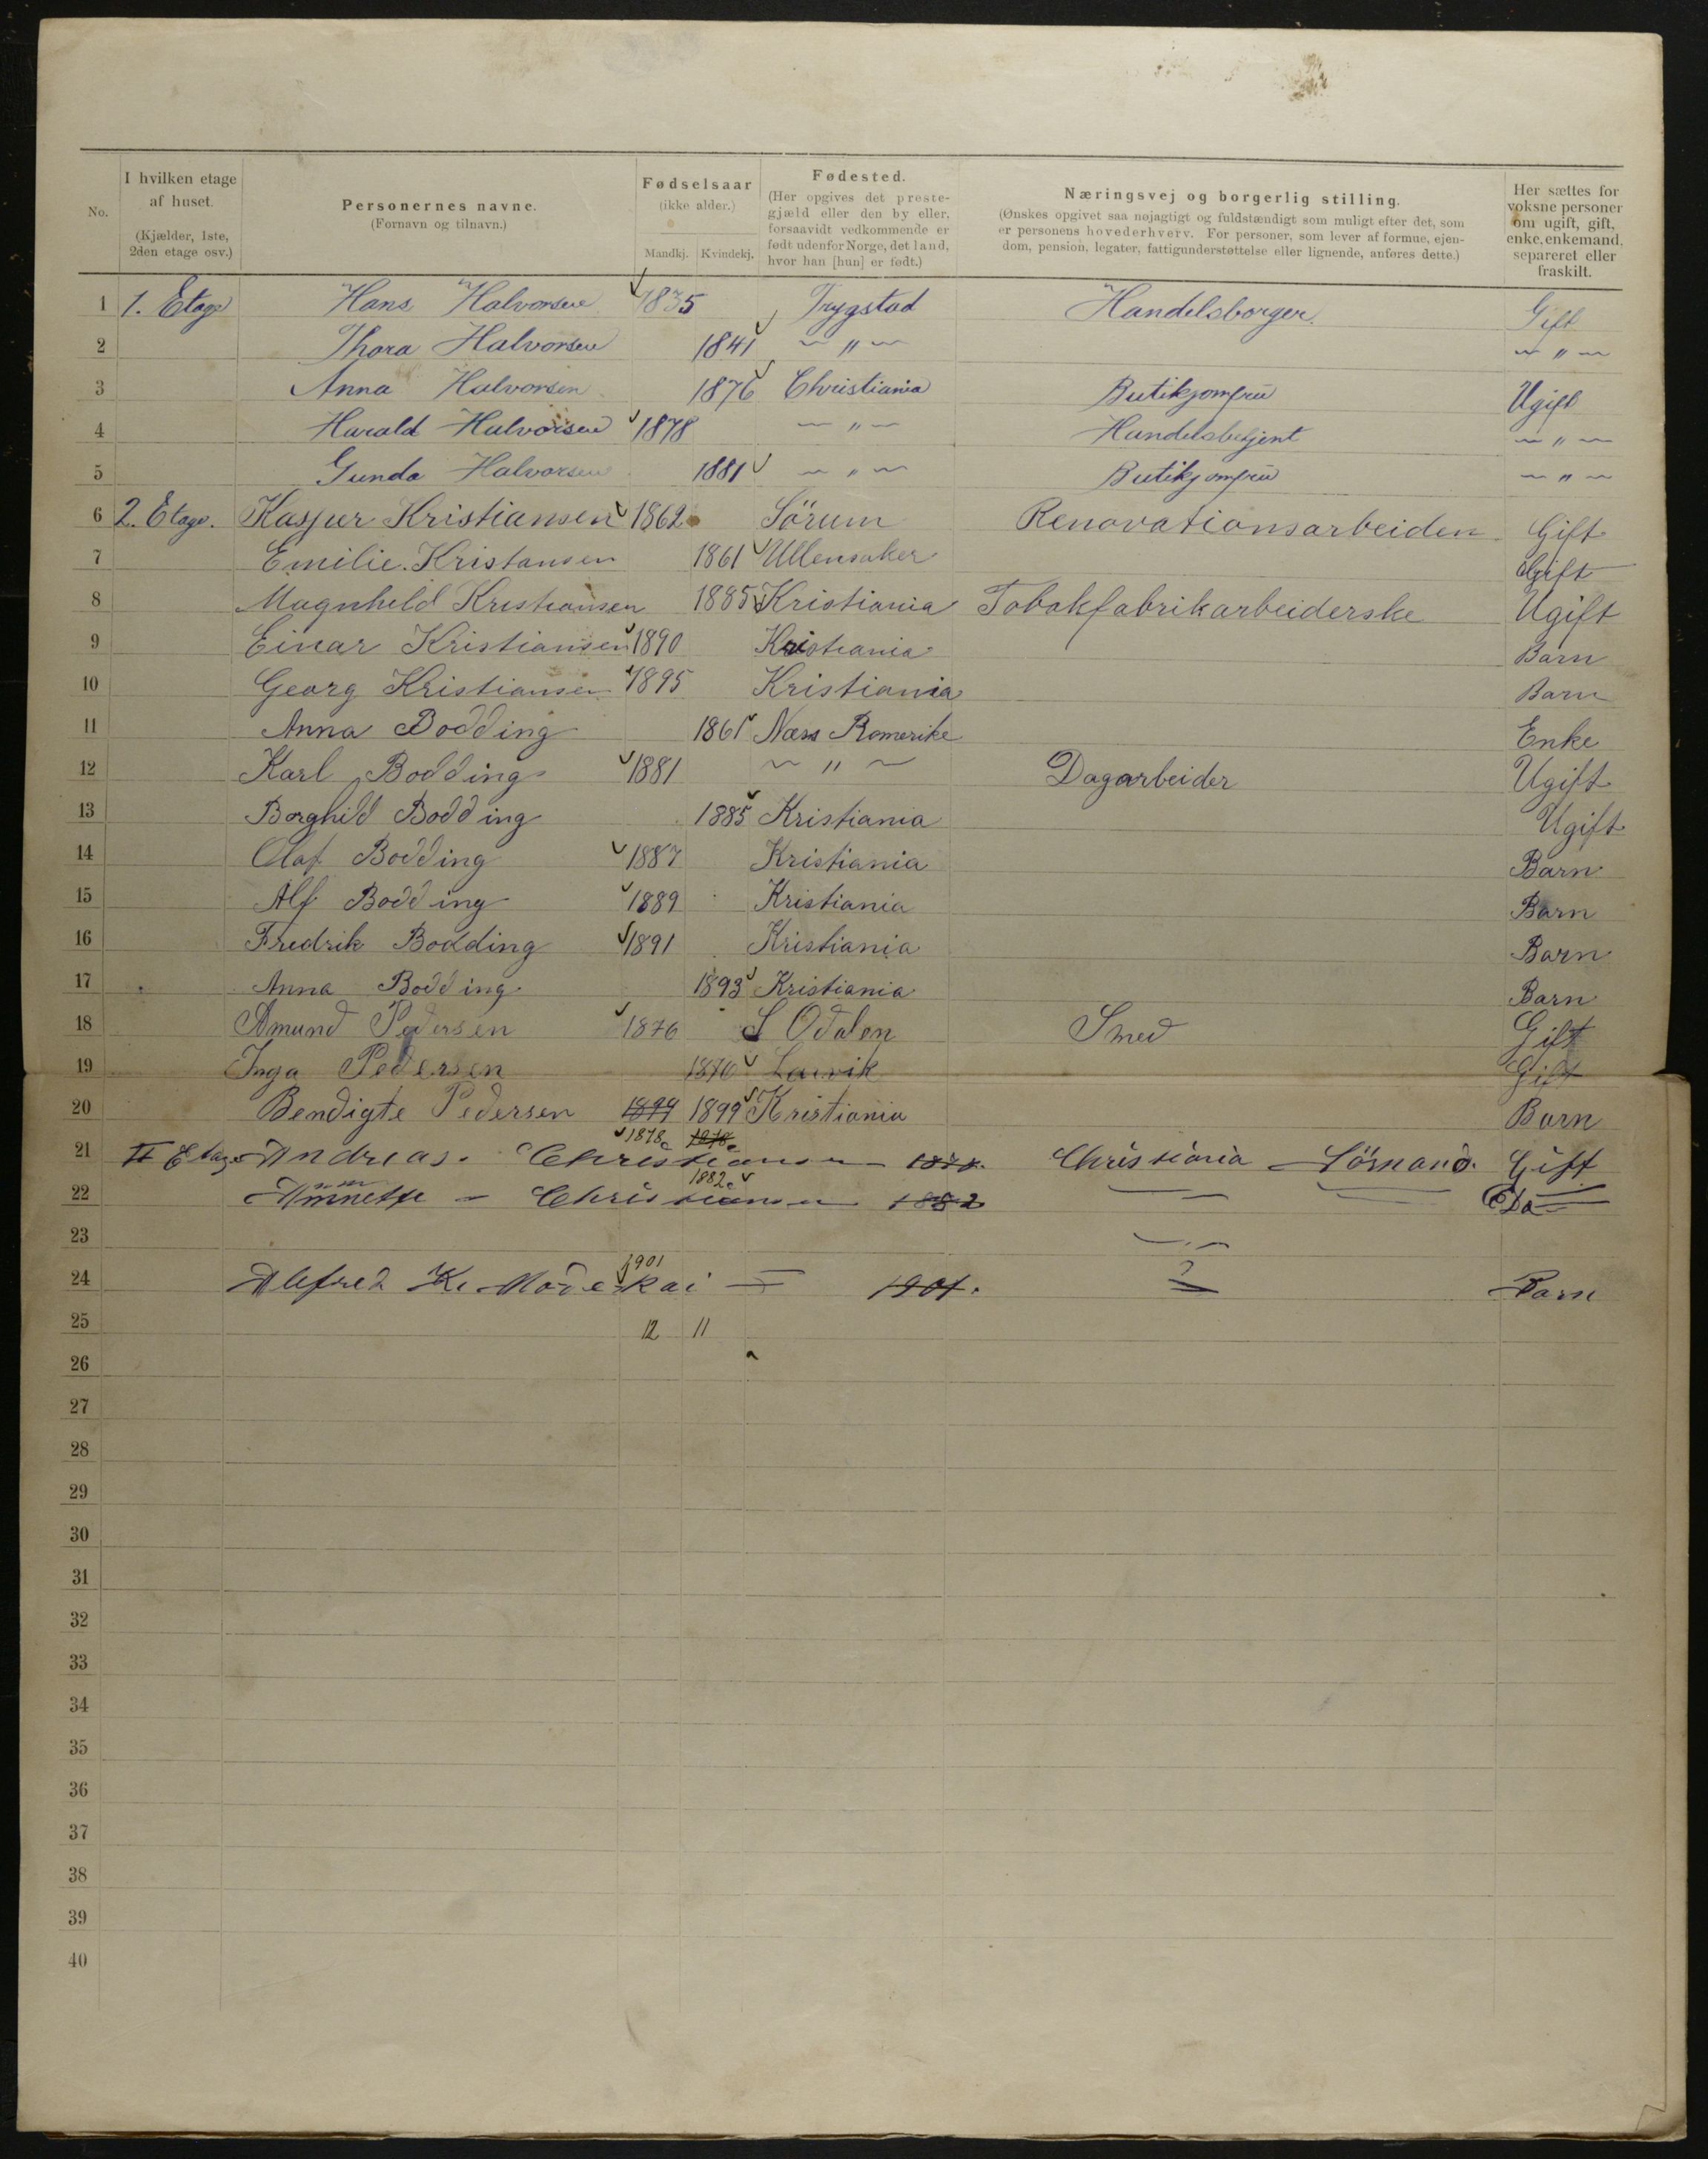 No. I hvilken etage af huset. (Kjælder, 1ste, 2den etage osv.) Personernes navne. (Fornavn og tilnavn.) Fødselsaar (ikke alder.) Mandkj. Kvindekj. Fødested. (Her opgives det prestegjæld eller den by eller, forsaavidt vedkommende er født udenfor Norge, det land, hvor han [hun] er født.) Næringsvej og borgerlig stilling. (Ønskes opgivet saa nøjagtigt og fuldstændigt som muligt efter det, som er personens hovederhverv. For personer, som lever af formue, ejendom, pension, legater, fattigunderstøttelse eller lignende, anføres dette.) Her sættes for voksne personer om ugift, gift, enke, enkemand, separeret eller fraskilt.
1 1. Etage Hans Halvorsen 1835 Trygstad Handelsborger. Gift
2 Thora Halvorsen 1841 — " — — " —
3 Anna Halvorsen 1876 Christiania Butikjomfru Ugift
4 Harald Halvorsen 1878 — " — Handelsbetjent — " —
5 Gunda Halvorsen 1881 — " — Butikjomfru — " —
6 2. Etage. Kasper Kristiansen 1862 Sörum Renovationsarbeider Gift
7 Emilie. Kristansen 1861 Ullensaker Gift
8 Magnhild Kristiansen 1885 Kristiania Tobakfabrikarbeiderske Ugift
9 Einar Kristiansen 1890 Kristiania Barn
10 Georg Kristiansen 1895 Kristiania Barn
11 Anna Bodding 1861 Næss Romerike Enke
12 Karl Bodding 1881 — " — Dagarbeider Ugift
13 Borghild Bodding 1885 Kristiania Ugift
14 Olaf Bodding 1887 Kristiania Barn
15 Alf Bodding 1889 Kristiania Barn
16 Fredrik Bodding 1891 Kristiania Barn
17 Anna Bodding 1893 Kristiania Barn
18 Amund Pedersen 1876 S Odalen Smed Gift
19 Inga Pedersen 1876 Laurvik Gift
20 Bendigte Pedersen 1899 1899 Kristiania Barn
21 II Etage Andreas. Christiansen 1878 1878 1878. Christiania Sömand. Gift
22 Annette - Christiansen 1882 1882 — — Do
23
24 Alfred 1901 1901. Barn
25 12 11
26
27
28
29
30
31
32
33
34
35
36
37
38
39
40